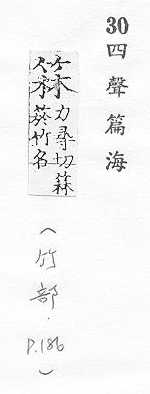 30四聲篇海
力尋切箖
箊竹名
(竹部.
P.186)